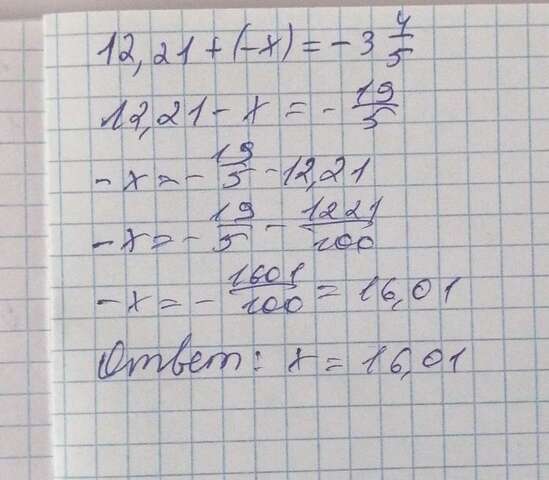 12,21 + (-x) = -3 4/5
12,21 - x = - 19/5
-x = - 19/5 - 12,21
-x = - 19/5 - 1221/100
-x = - 1601/100 = 16,01
Ответ: x = 16,01